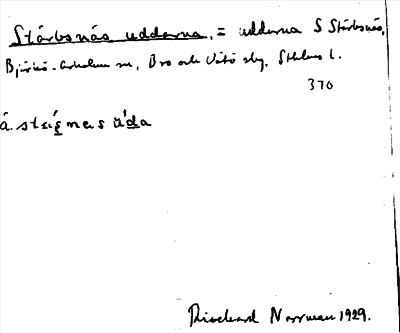 Stårbsnäs uddarna, = uddarna S Stårbsnäs,
Björkö-Arholma sn, Bro och Vätö slg, Sthlms l.
370
Rickard Norrman 1929.